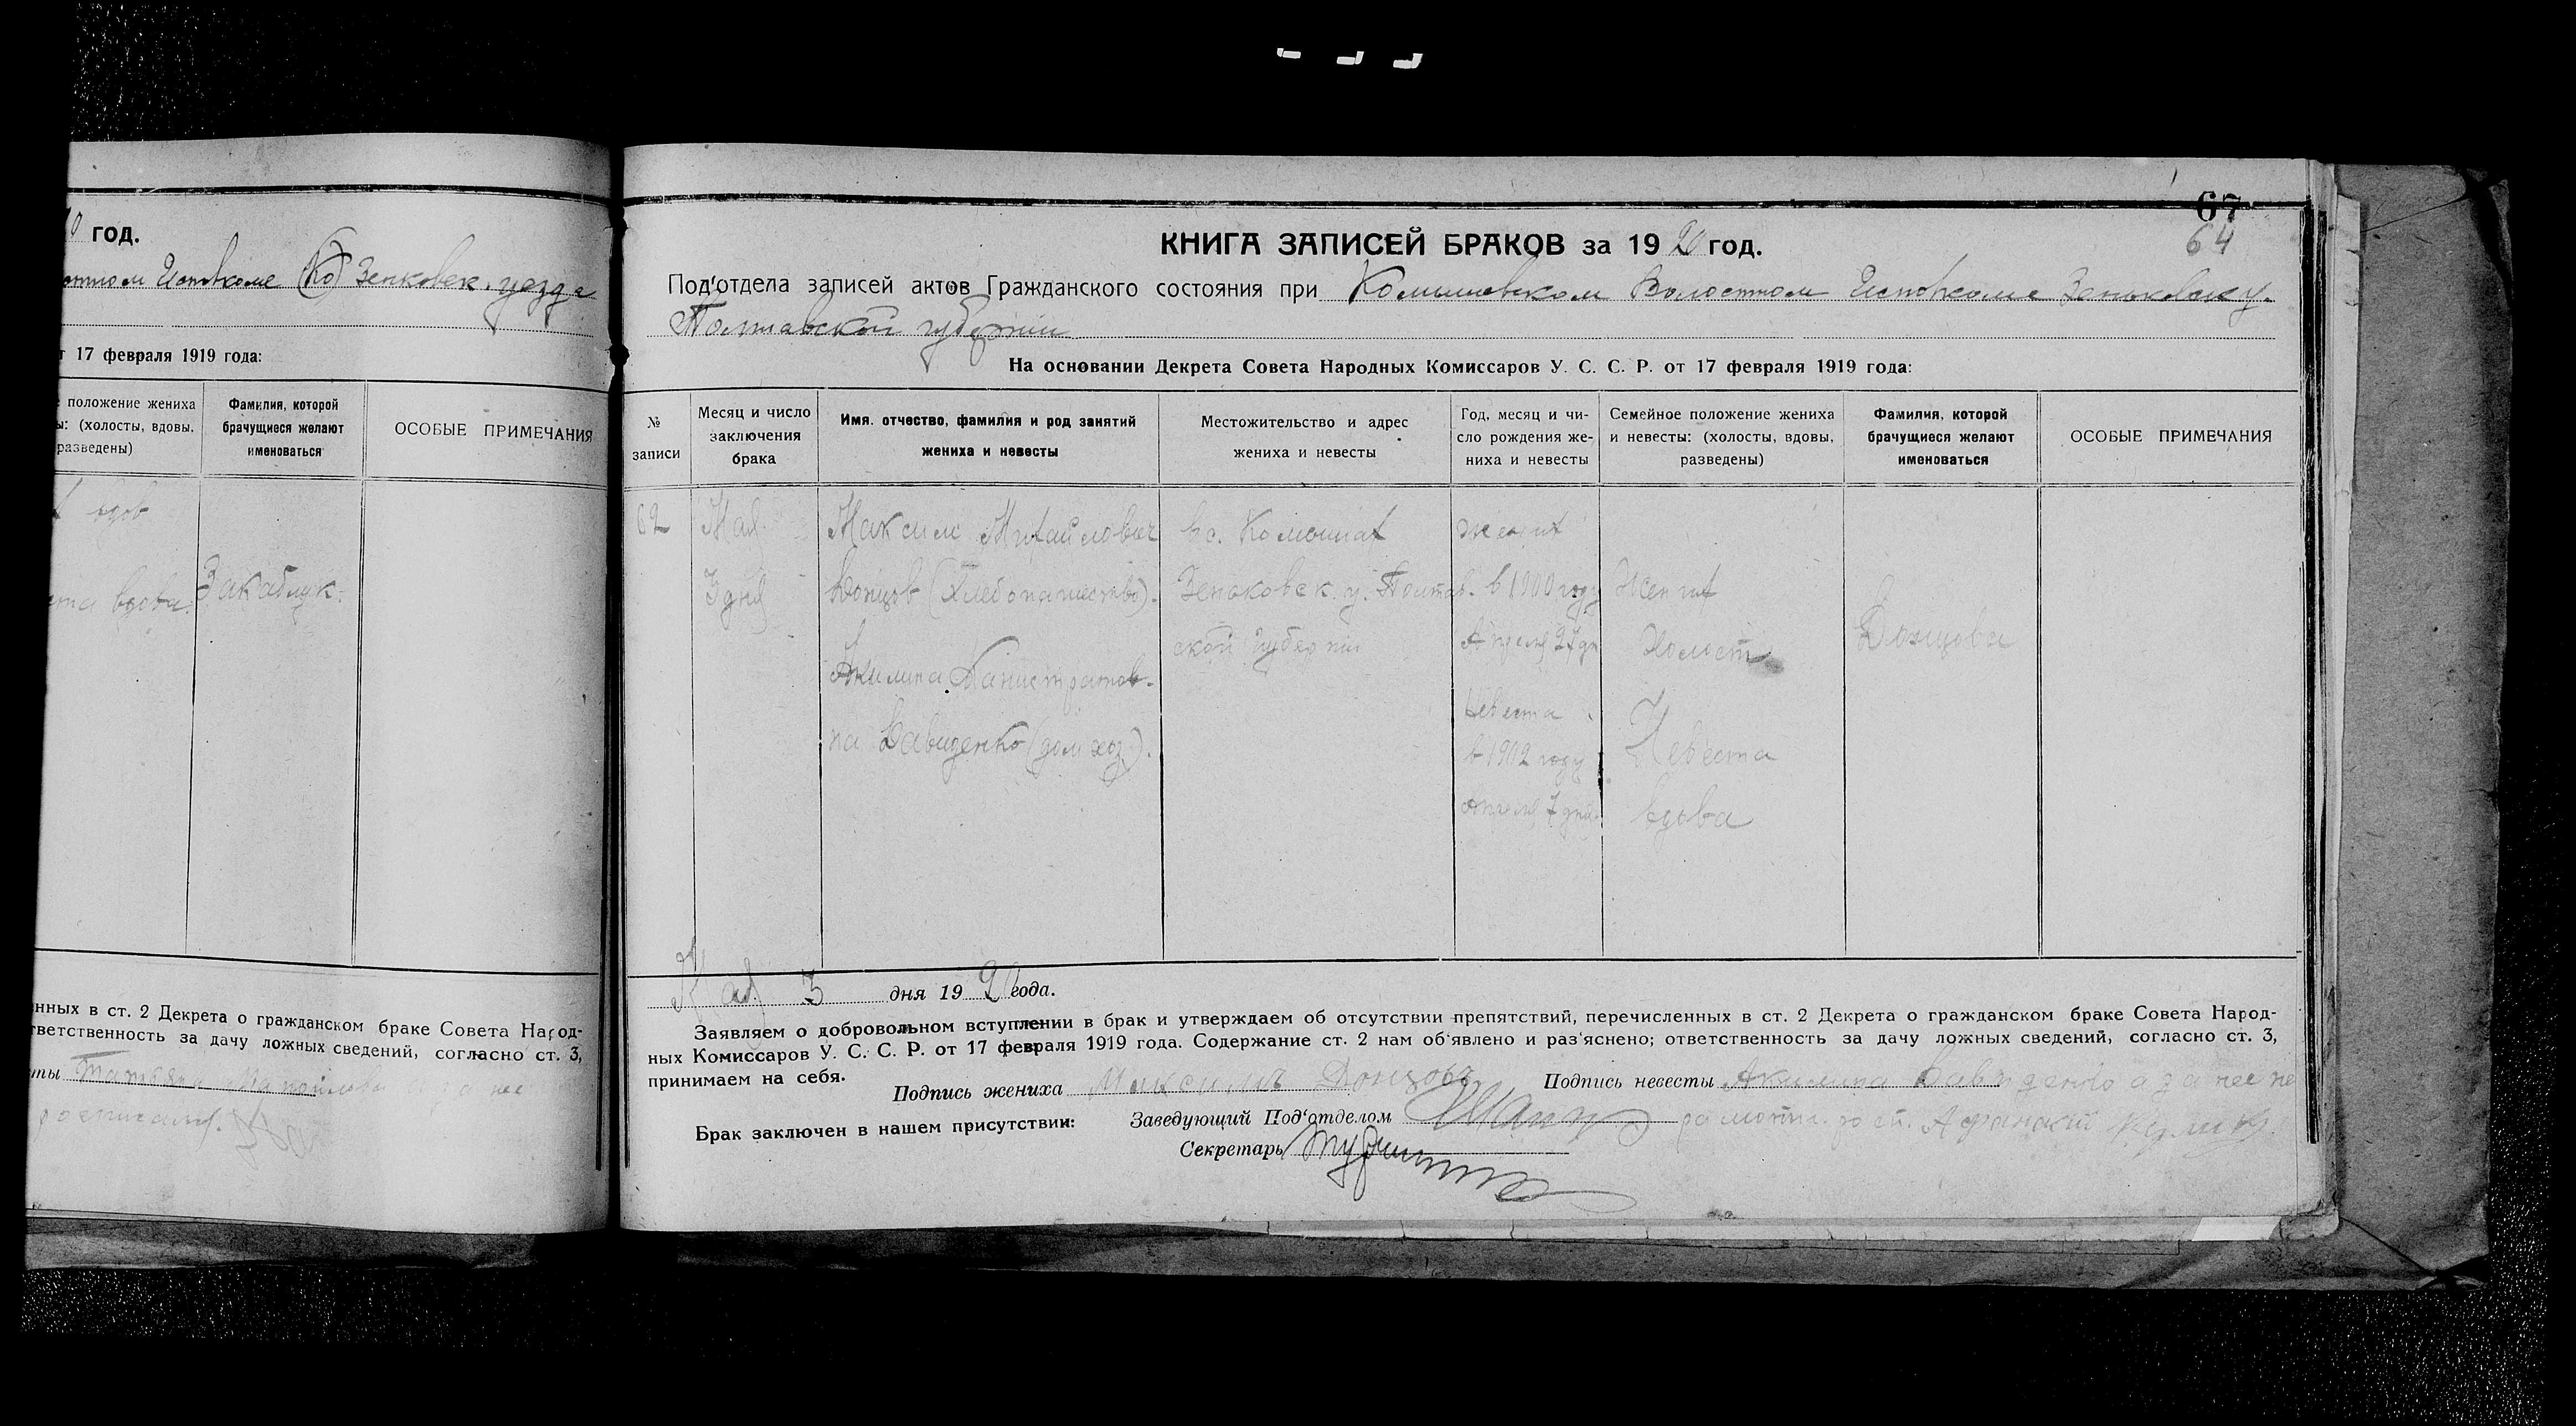 год.
Исполкоме Зенковск. уезда
17 февраля 1919 года:
положение жениха
(холосты, вдовы,
разведены)
Фамилия, которой
брачущиеся желают
именоваться
ОСОБЫЕ ПРИМЕЧАНИЯ
вдов
вдова.
Закаблук.
в ст. 2 Декрета о гражданском браке Совета Народ-
за дачу ложных сведений, согласно ст. 3,
67
64
КНИГА ЗАПИСЕЙ БРАКОВ за 1920 год.
Под'отдела записей актов Гражданского состояния при Комышевском Волостном Исполкоме Зеньковск у.
Полтавской губернии
На основании Декрета Совета Народных Комиссаров У. С. С. Р. от 17 февраля 1919 года:
№
записи
Месяц и число
заключения
брака
Имя. отчество, фамилия и род занятий
жениха и невесты
Местожительство и адрес
жениха и невесты
Год, месяц и чи-
сло рождения же-
ниха и невесты
Семейное положение жениха
и невесты: (холосты, вдовы,
разведены)
Фамилия, которой
брачущиеся желают
именоваться
ОСОБЫЕ ПРИМЕЧАНИЯ
62
Мая
3 дня
Максим Михайлович
Донцов (Хлебопашество).
Акилина Канистратов-
на Давиденко (дом хоз).
в с. Комышах
Зеньковск. у. Полтав-
ской губернии
жених
в 1900 году
Апреля 27 дн
невеста
в 1902 году
апреля 7 дня.
Жених
Холост
Невеста
вдова
Донцова
Мая 3 дня 1920 года.
Заявляем о добровольном вступлении в брак и утверждаем об отсутствии препятствий, перечисленных в ст. 2 Декрета о гражданском браке Совета Народ-
ных Комиссаров У. С. С. Р. от 17 февраля 1919 года. Содержание ст. 2 нам об'явлено и раз'яснено; ответственность за дачу ложных сведений, согласно ст. 3,
принимаем на себя.
Подпись жениха Максимъ Донцовъ
Подпись невесты Акилина Давиденко а за нее не
Брак заключен в нашем присутствии:
Заведующий Под'отделом
Секретарь